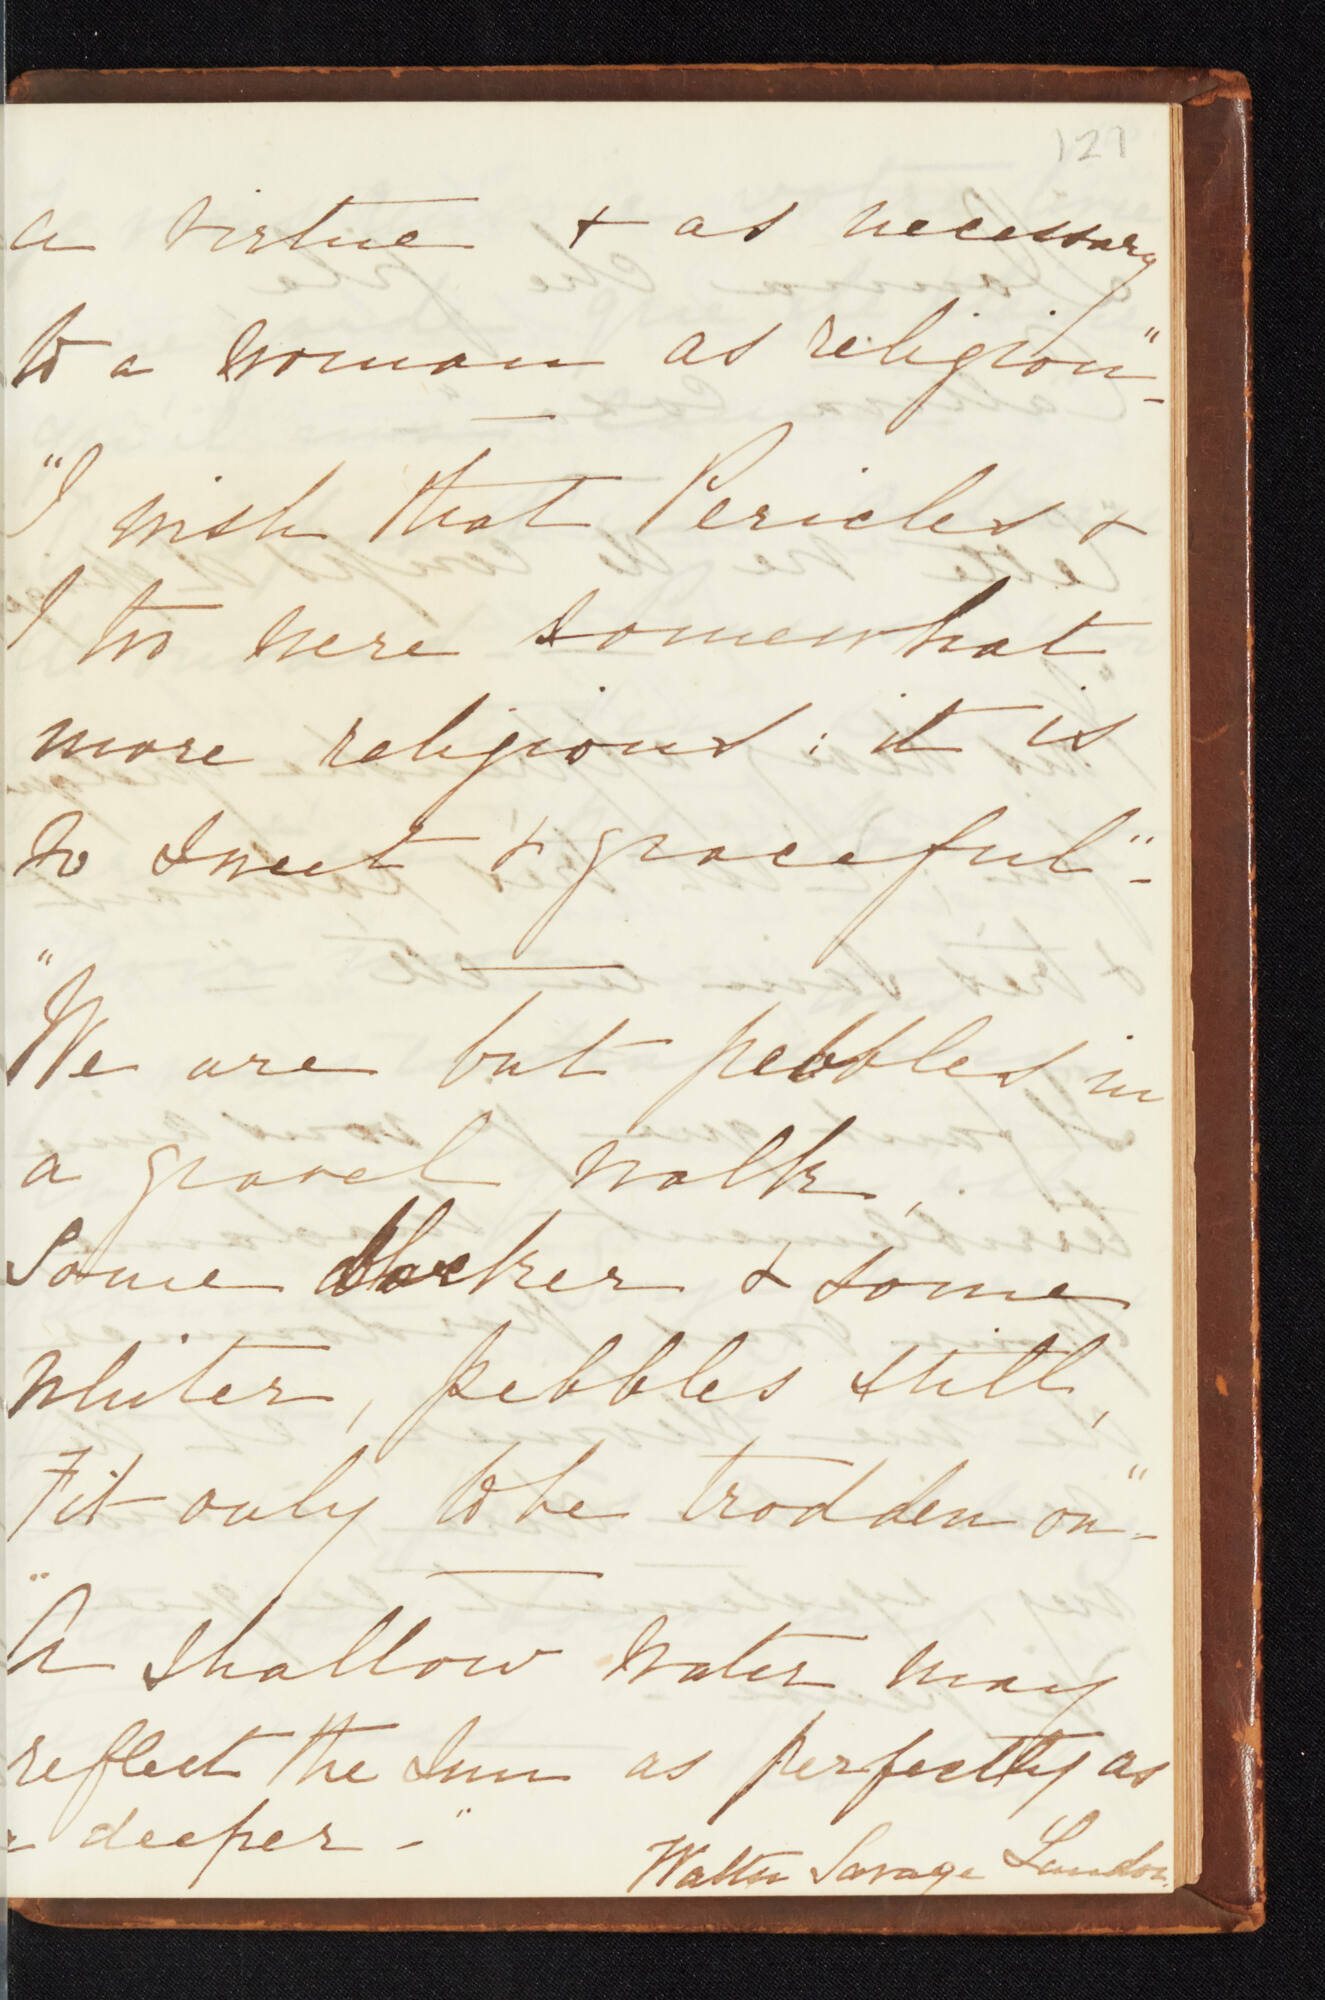 127
a virtue & as necessary
to a woman as religion"-
"I wish that Pericles &
I too were somewhat
more religious: it is
so sweet & graceful"-
"We are but pebbles in
a gravel walk,
Some blacker & some
whiter, pebbles still,
Fit only to be trodden on"-
"A shallow water may
reflect the Sun as perfectly as
a deeper-"
Walter Savage Landor.